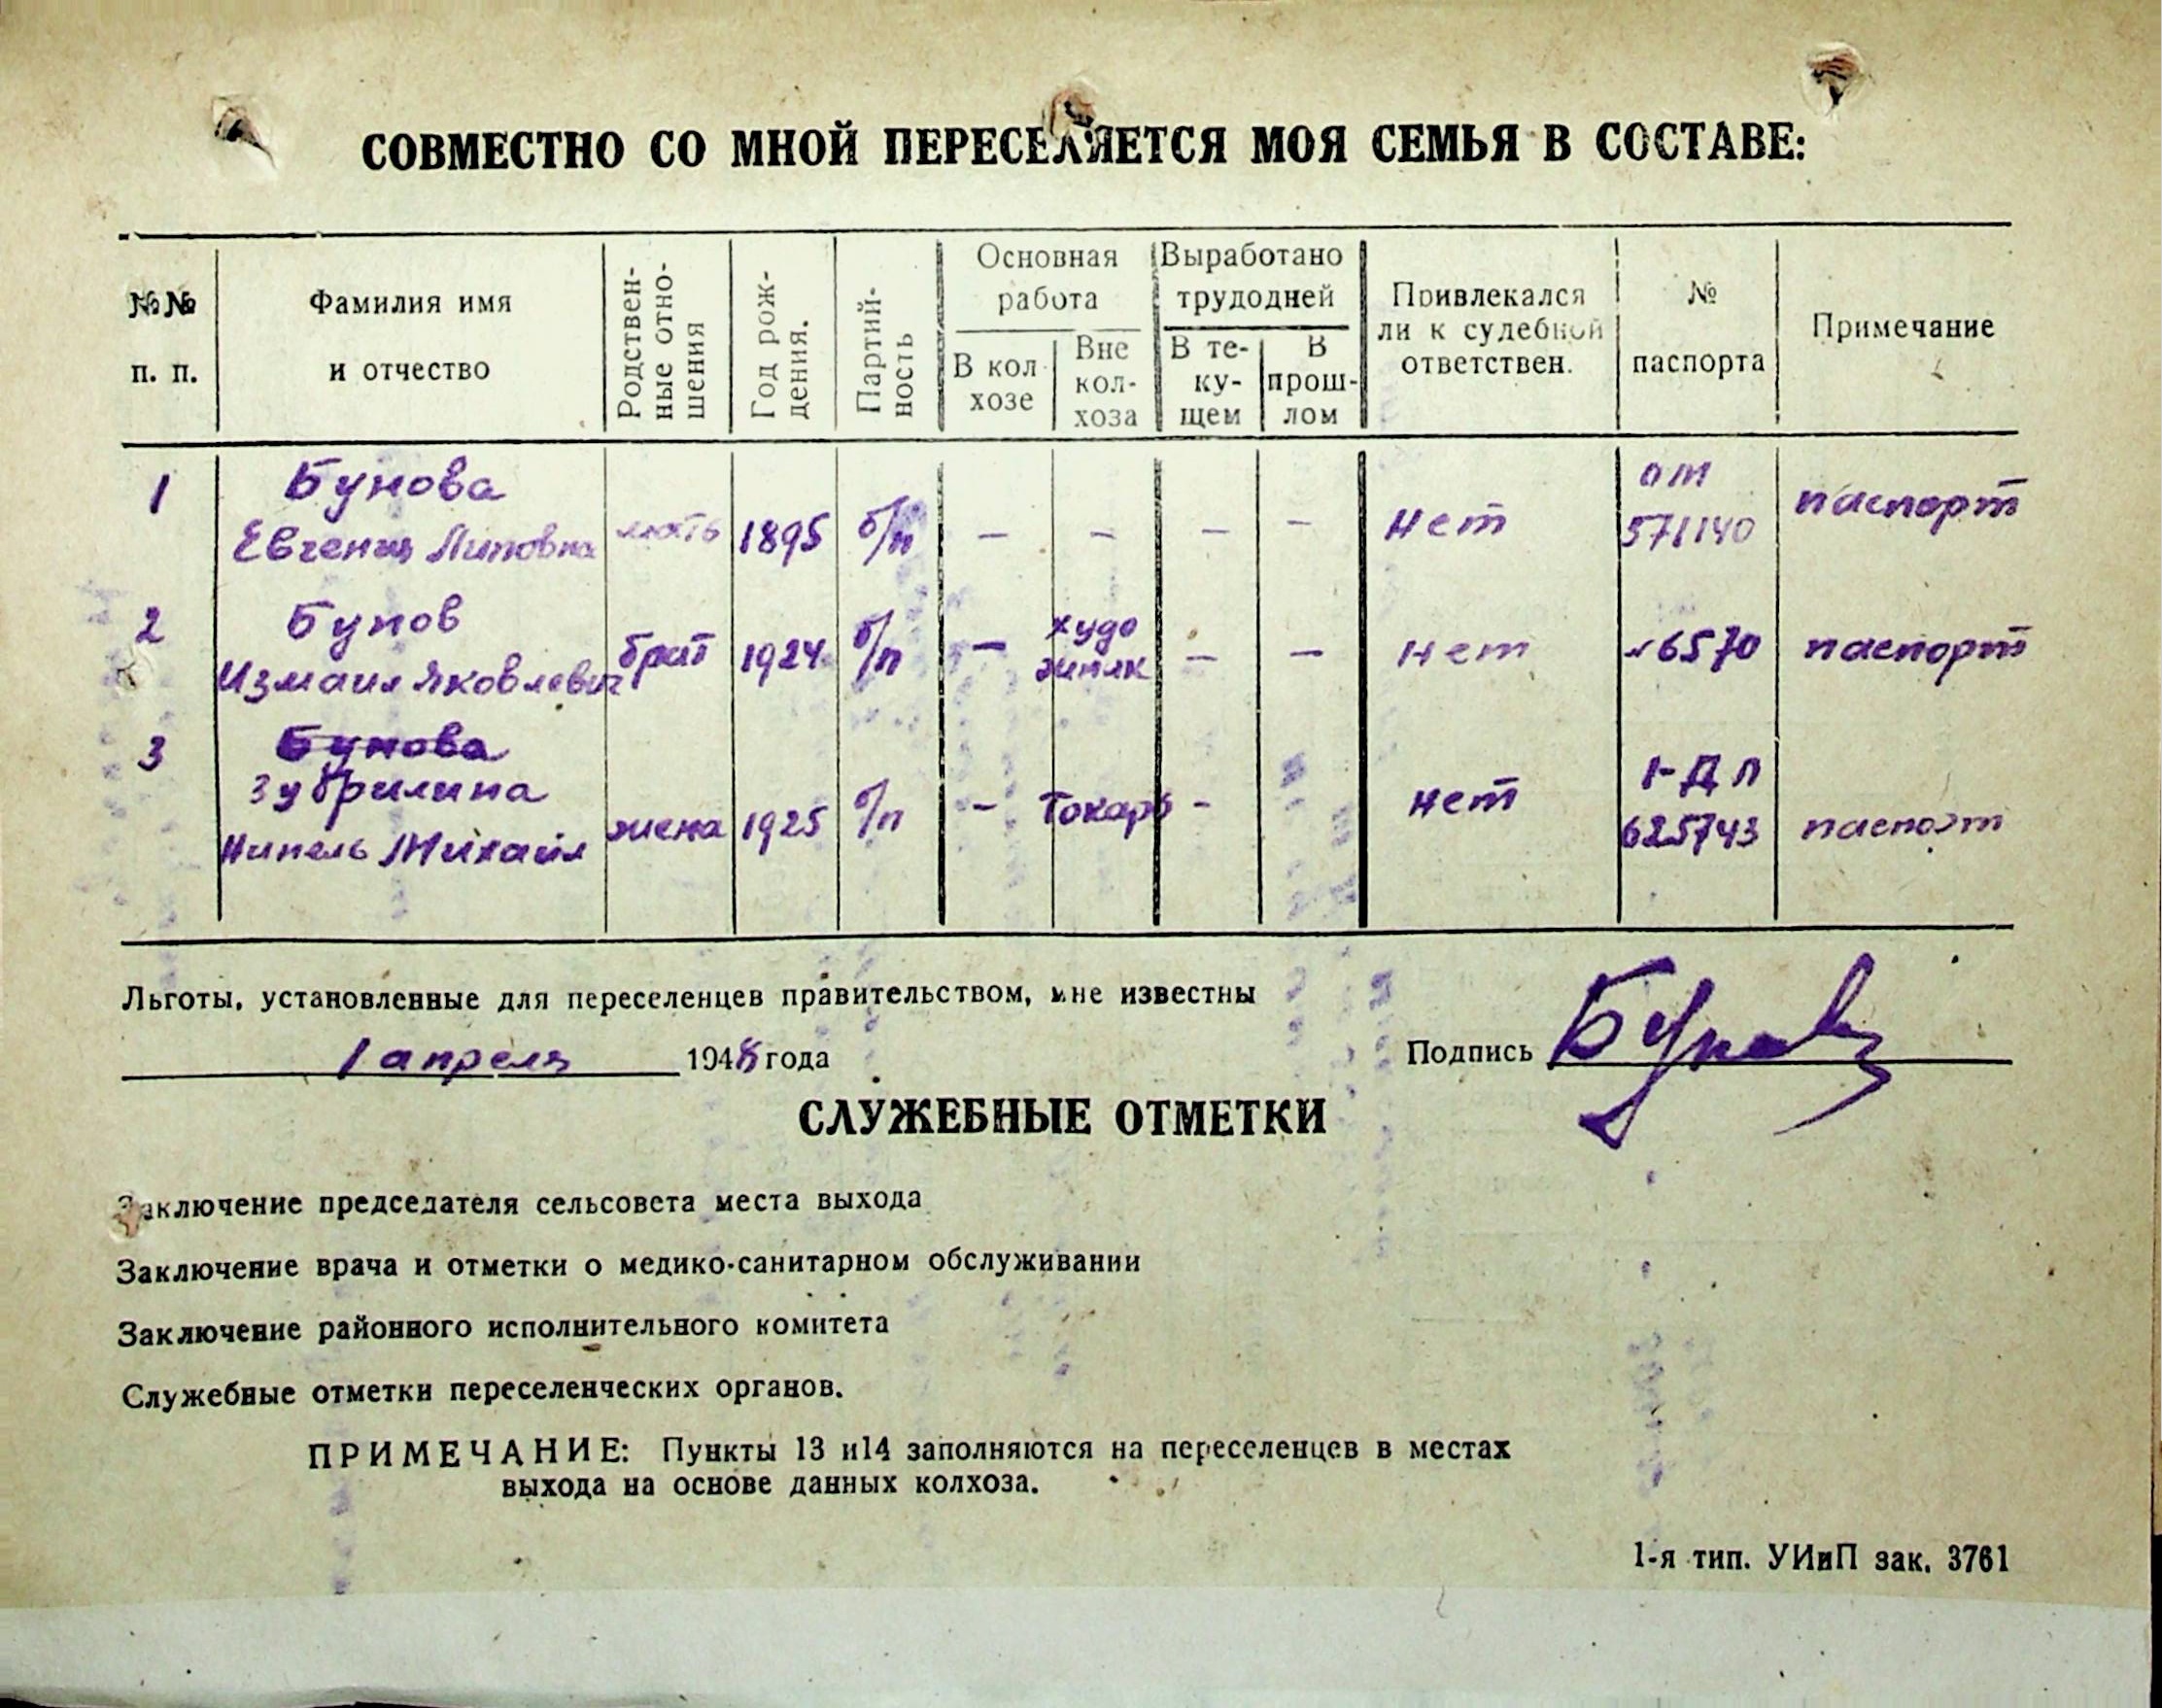 СОВМЕСТНО СО МНОЙ ПЕРЕСЕЛЯЕТСЯ МОЯ СЕМЬЯ В СОСТАВЕ:
№№ п. п.
Фамилия имя и отчество
Родствен-ные отно-шения
Год рож-дения.
Партий-ность
Основная работа
В кол-хозе
Вне кол-хоза
Выработано трудодней
В те-ку-щем
В прош-лом
Привлекался ли к судебной ответствен.
№ паспорта
Примечание
1 Бунова Евгения Липовна мать 1895 б/п – – – – Нет 571140 паспорт
2 Бунов Измаил Яковлевич брат 1924 б/п – худо жник – – Нет 6570 паспорт
3 Бунова Зубрилина Нинель Михайл жена 1925 б/п – Токарь – нет 1-ДЛ 625743 паспорт
Льготы, установленные для переселенцев правительством, мне известны
1 апреля 1948 года
Подпись Бунов
СЛУЖЕБНЫЕ ОТМЕТКИ
Заключение председателя сельсовета места выхода
Заключение врача и отметки о медико-санитарном обслуживании
Заключение районного исполнительного комитета
Служебные отметки переселенческих органов.
ПРИМЕЧАНИЕ: Пункты 13 и14 заполняются на переселенцев в местах
выхода на основе данных колхоза.
1-я тип. УИиП зак. 3761